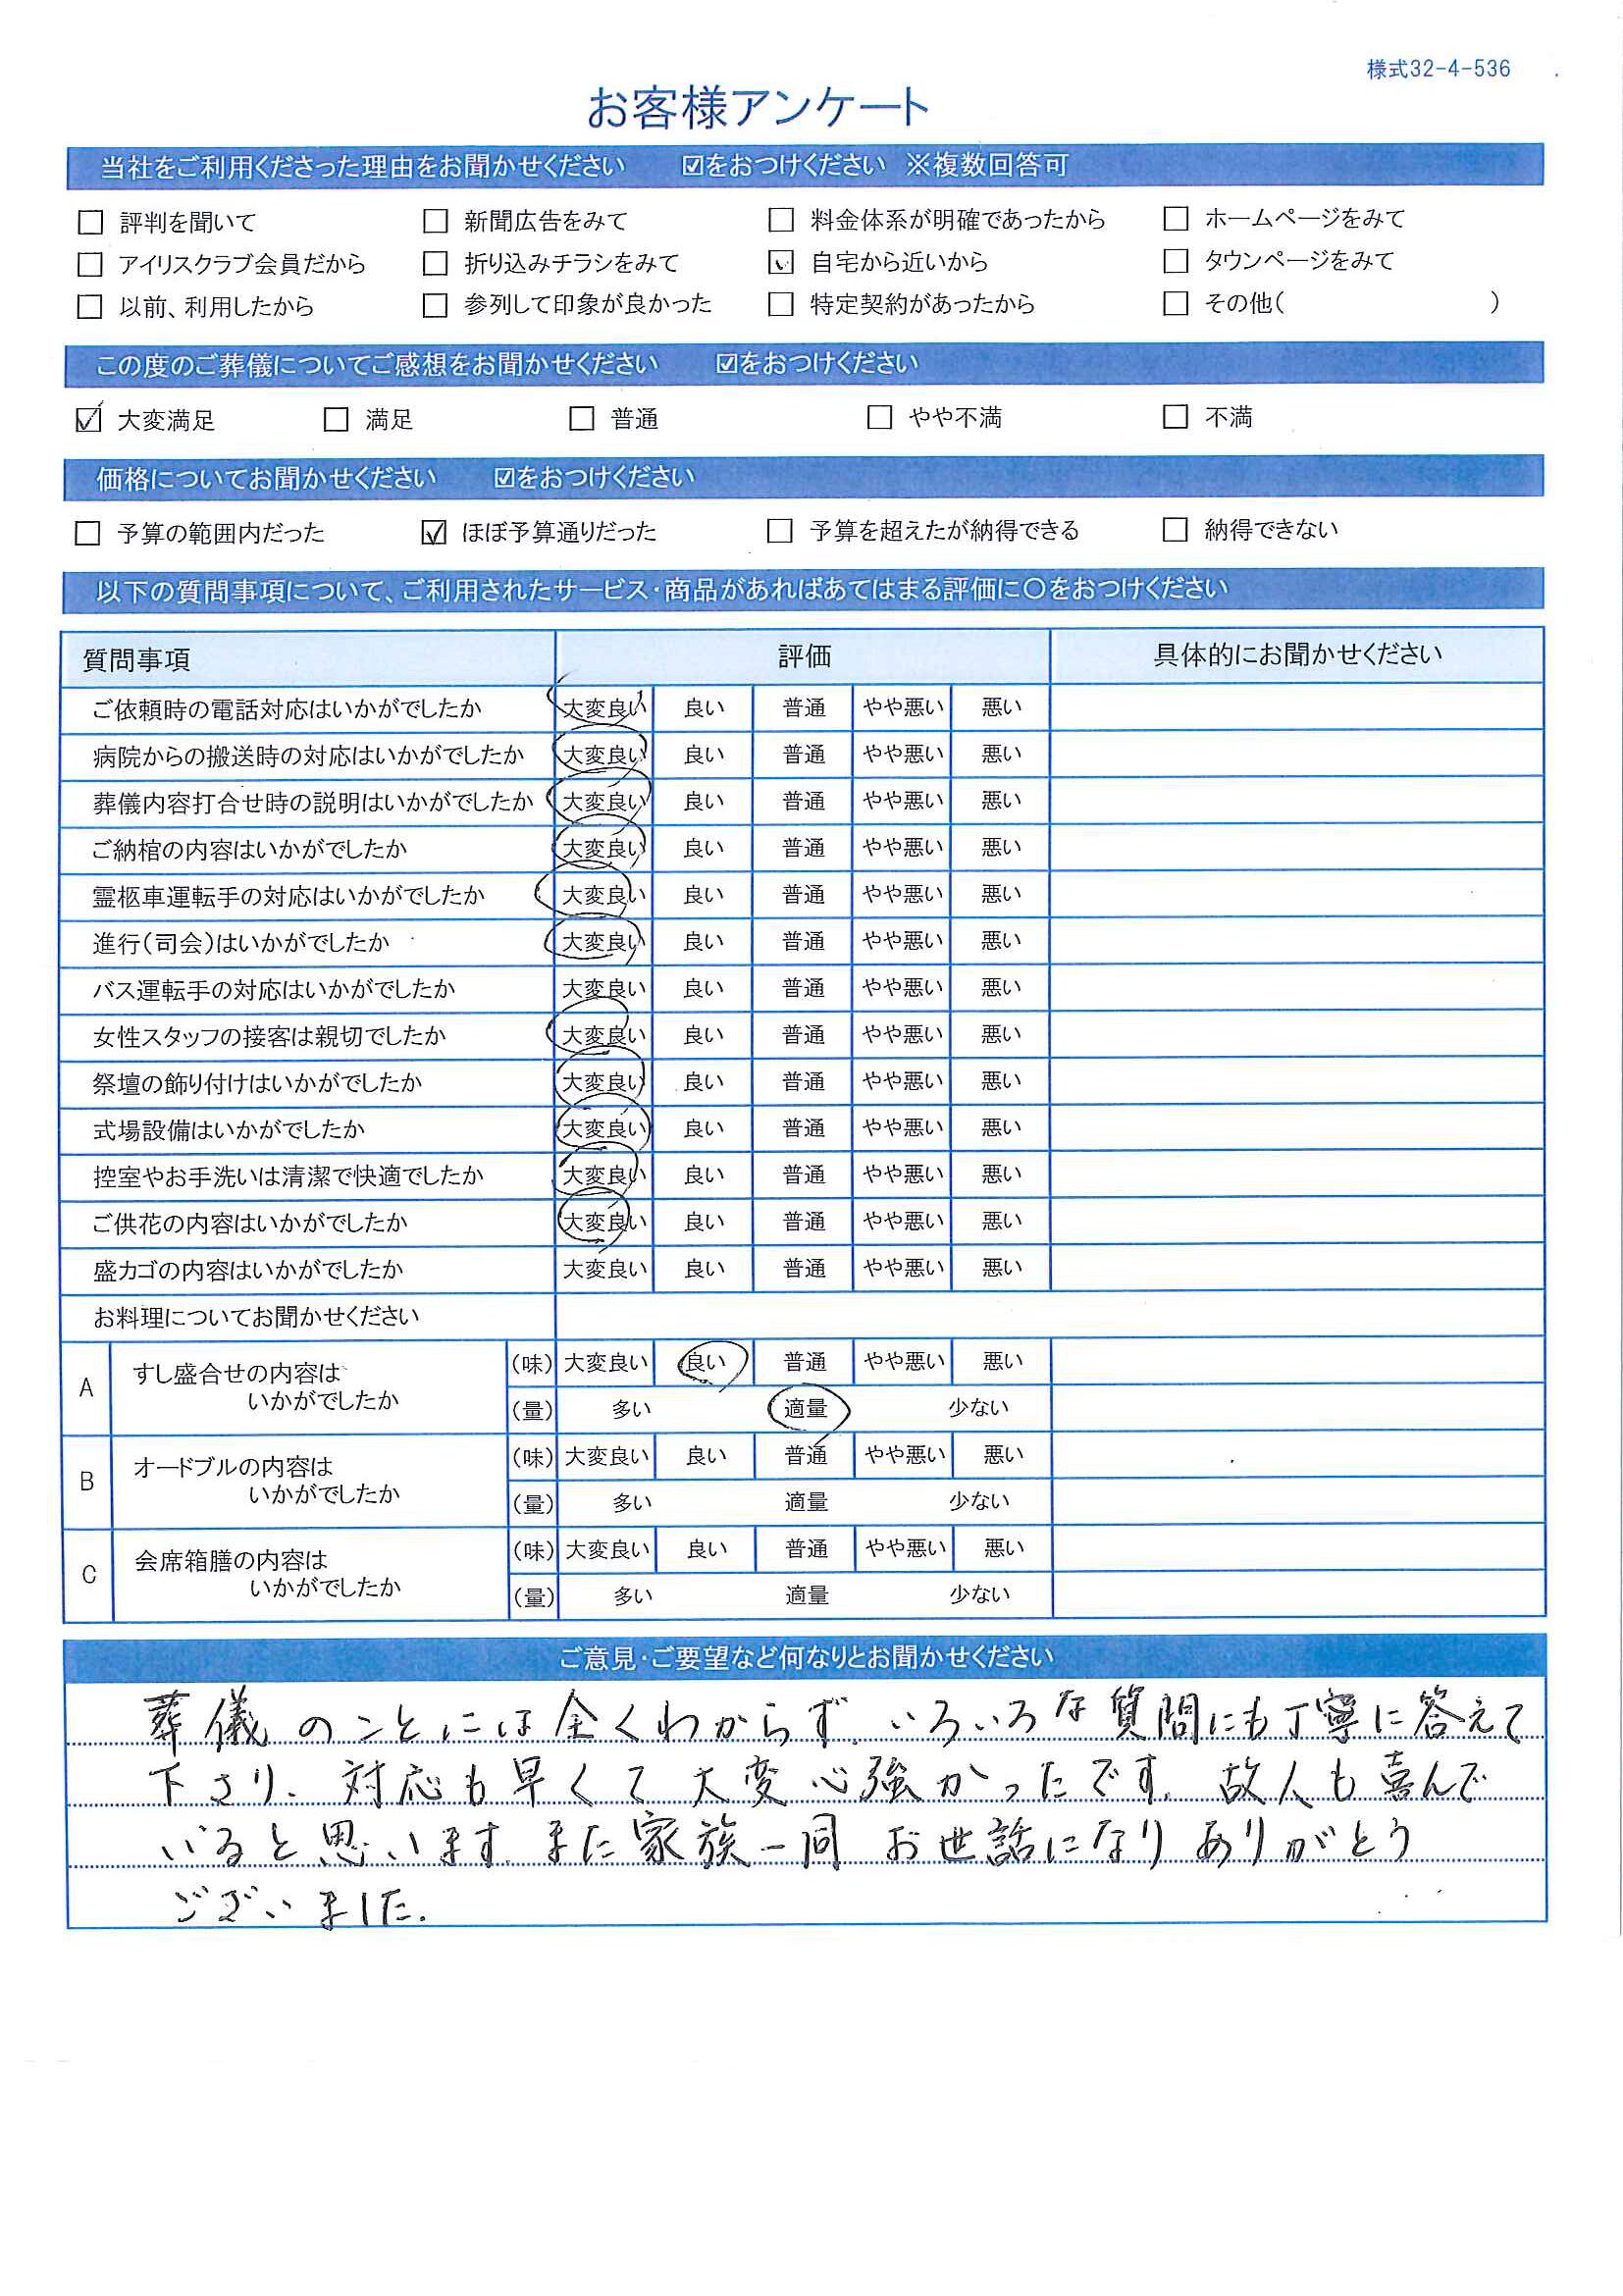 様式32-4-536
お客様アンケート
当社をご利用くださった理由をお聞かせください ☑をおつけください ※複数回答可
☐ 評判を聞いて ☐ 新聞広告をみて ☐ 料金体系が明確であったから ☐ ホームページをみて
☐ アイリスクラブ会員だから ☐ 折り込みチラシをみて ☑ 自宅から近いから ☐ タウンページをみて
☐ 以前、利用したから ☐ 参列して印象が良かった ☐ 特定契約があったから ☐ その他( )
この度のご葬儀についてご感想をお聞かせください ☑をおつけください
☑ 大変満足 ☐ 満足 ☐ 普通 ☐ やや不満 ☐ 不満
価格についてお聞かせください ☑をおつけください
☐ 予算の範囲内だった ☑ ほぼ予算通りだった ☐ 予算を超えたが納得できる ☐ 納得できない
以下の質問事項について、ご利用されたサービス・商品があればあてはまる評価に〇をおつけください
質問事項 評価 具体的にお聞かせください
ご依頼時の電話対応はいかがでしたか 大変良い 良い 普通 やや悪い 悪い
病院からの搬送時の対応はいかがでしたか 大変良い 良い 普通 やや悪い 悪い
葬儀内容打合せ時の説明はいかがでしたか 大変良い 良い 普通 やや悪い 悪い
ご納棺の内容はいかがでしたか 大変良い 良い 普通 やや悪い 悪い
霊柩車運転手の対応はいかがでしたか 大変良い 良い 普通 やや悪い 悪い
進行(司会)はいかがでしたか 大変良い 良い 普通 やや悪い 悪い
バス運転手の対応はいかがでしたか 大変良い 良い 普通 やや悪い 悪い
女性スタッフの接客は親切でしたか 大変良い 良い 普通 やや悪い 悪い
祭壇の飾り付けはいかがでしたか 大変良い 良い 普通 やや悪い 悪い
式場設備はいかがでしたか 大変良い 良い 普通 やや悪い 悪い
控室やお手洗いは清潔で快適でしたか 大変良い 良い 普通 やや悪い 悪い
ご供花の内容はいかがでしたか 大変良い 良い 普通 やや悪い 悪い
盛カゴの内容はいかがでしたか 大変良い 良い 普通 やや悪い 悪い
お料理についてお聞かせください
A すし盛合せの内容は
いかがでしたか
(味) 大変良い 良い 普通 やや悪い 悪い
(量) 多い 適量 少ない
B オードブルの内容は
いかがでしたか
(味) 大変良い 良い 普通 やや悪い 悪い
(量) 多い 適量 少ない
C 会席箱膳の内容は
いかがでしたか
(味) 大変良い 良い 普通 やや悪い 悪い
(量) 多い 適量 少ない
ご意見・ご要望など何なりとお聞かせください
葬儀のことには全くわからず、いろいろな質問にも丁寧に答えて
下さり、対応も早くて大変心強かったです。故人も喜んで
いると思います。また家族一同 お世話になりありがとう
ございました。